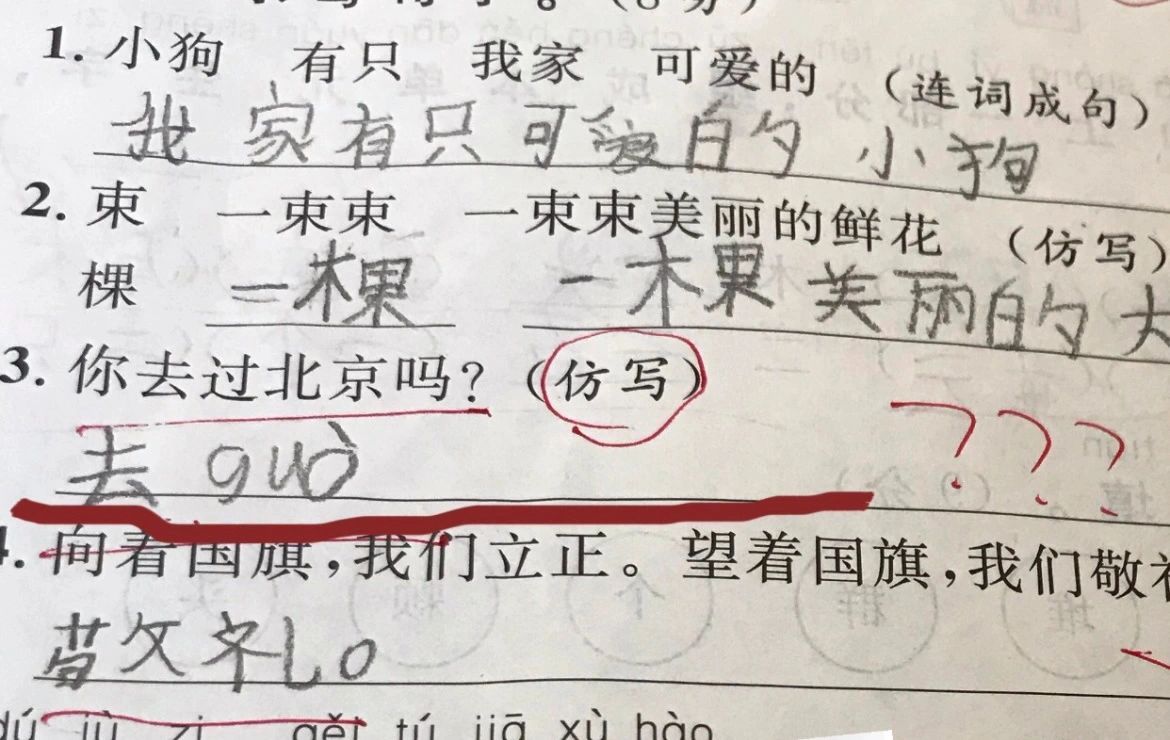 1. 小狗 有只 我家 可爱的 （连词成句）
我家有只可爱的小狗
2. 束 一束束 一束束美丽的鲜花 （仿写）
棵 一棵 一棵美丽的大
3. 你去过北京吗？（仿写）
去 guò
？？？
4. 向着国旗，我们立正。望着国旗，我们敬礼
敬礼。
dú jù zi gěi tú jiā xù hào